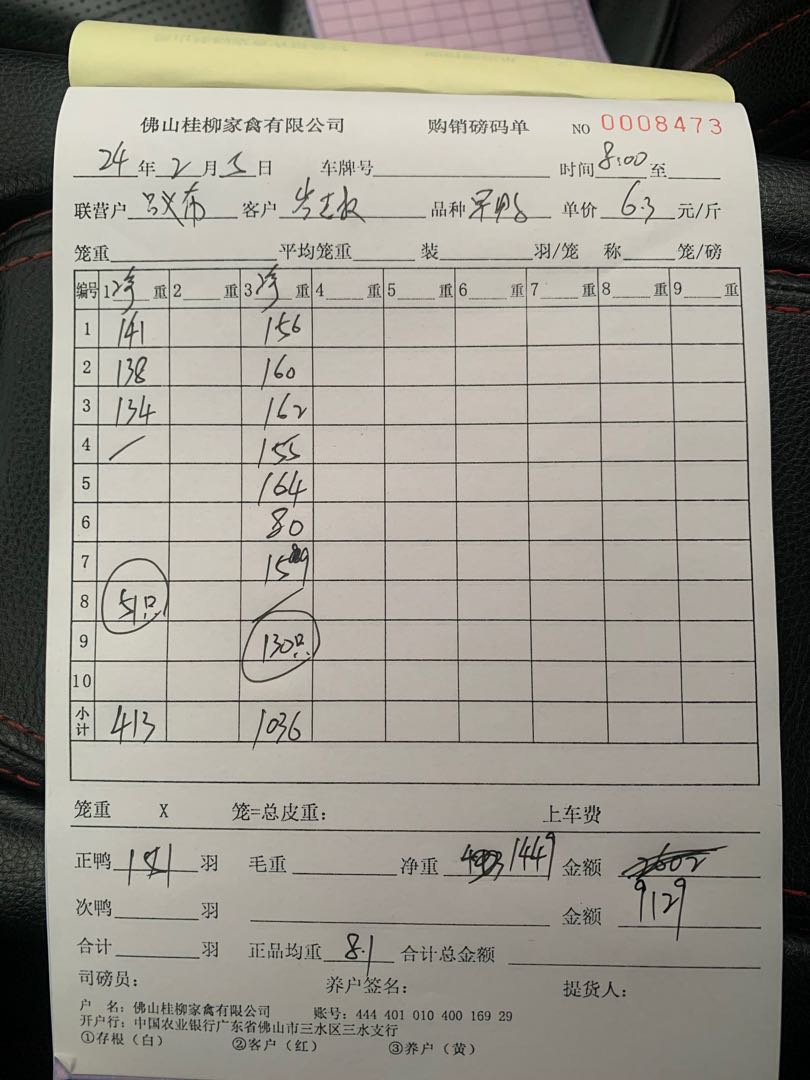 佛山桂柳家禽有限公司 购销磅码单 NO 0008473
24年2月3日 车牌号 时间8:00至
联营户 吕义布 客户 品种 单价 6.3 元/斤
笼重 平均笼重 装 羽/笼 称 笼/磅
编号 1净重 2 重 3净重 4 重 5 重 6 重 7 重 8 重 9 重
1 141 156
2 138 160
3 134 162
4 / 155
5 164
6 80
7 159
8 51只 /
9 130只
10
小计 413 1036
笼重 X 笼=总皮重: 上车费
正鸭 181 羽 毛重 净重 1449 金额 2602
次鸭 羽 金额 9129
合计 羽 正品均重 8.1 合计总金额
司磅员: 养户签名: 提货人:
户 名: 佛山桂柳家禽有限公司 账号: 444 401 010 400 169 29
开户行: 中国农业银行广东省佛山市三水区三水支行
①存根(白) ②客户(红) ③养户(黄)